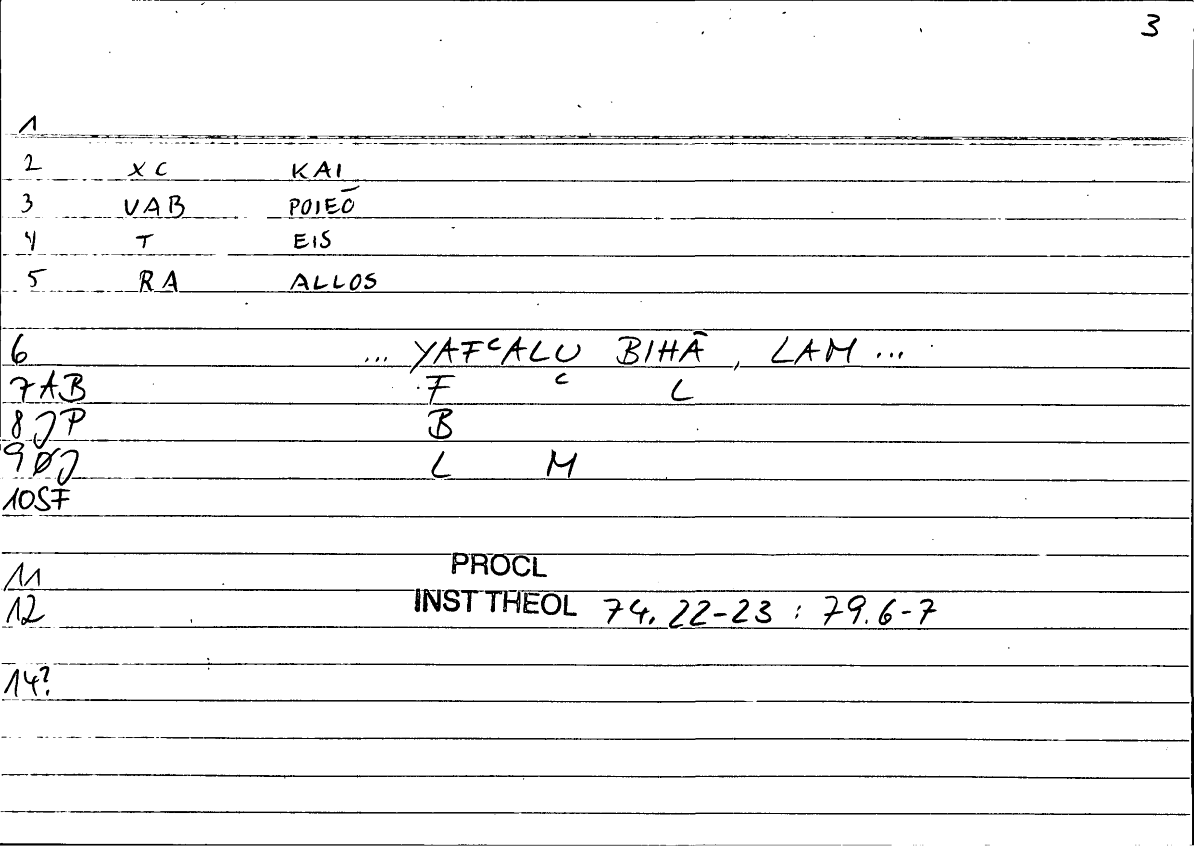 3
1
2 XC KAI
3 VAB POIEŌ
4 T EIS
5 RA ALLOS
6 ... YAFᶜALU BIHĀ, LAM ...
7AB F ᶜ L
8JP B
9ØJ L M
10SF
11 PROCL
12 INST THEOL 74.22-23 : 79.6-7
14?